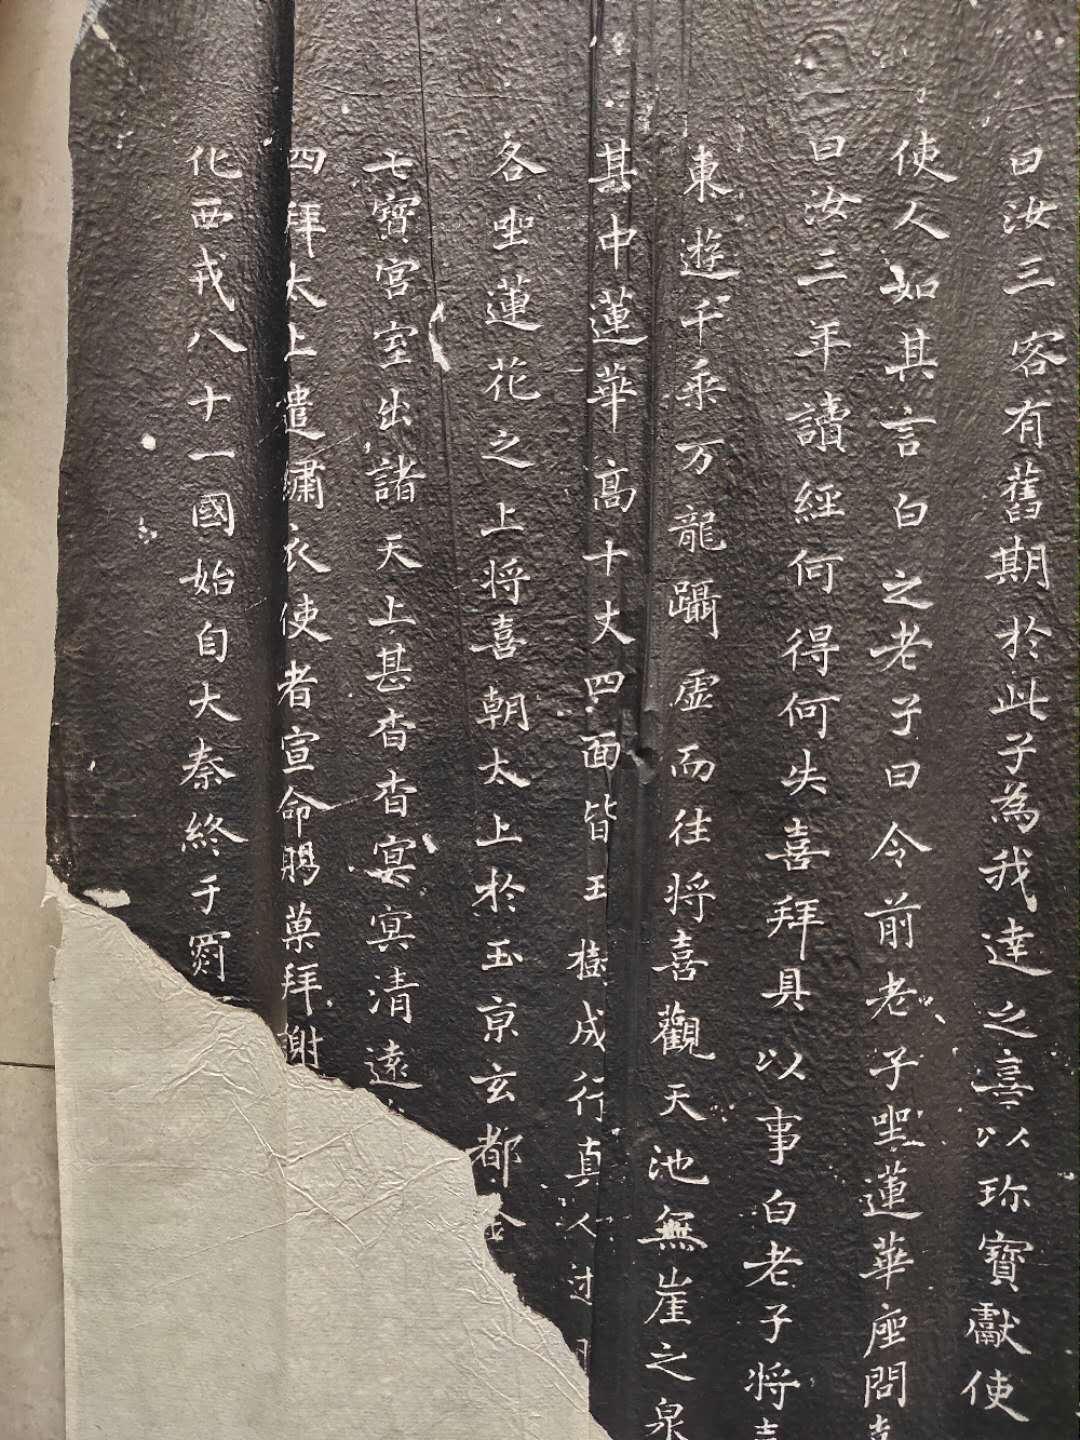 曰汝三客有舊期於此子為我達之喜以珎寶獻使
使人如其言白之老子曰令前老子坐蓮華座問喜
曰汝三年讀經何得何失喜拜具以事白老子将喜
東遊千乘万龍躡虚而往将喜觀天池無崖之泉
其中蓮華高十丈四面皆玉樹成行真人过
各坐蓮花之上将喜朝太上於玉京玄都金
七寶宮室出諸天上甚杳杳冥冥清遠
四拜太上遣繡衣使者宣命賜菓拜謝
化西戎八十一國始自大秦終于罽